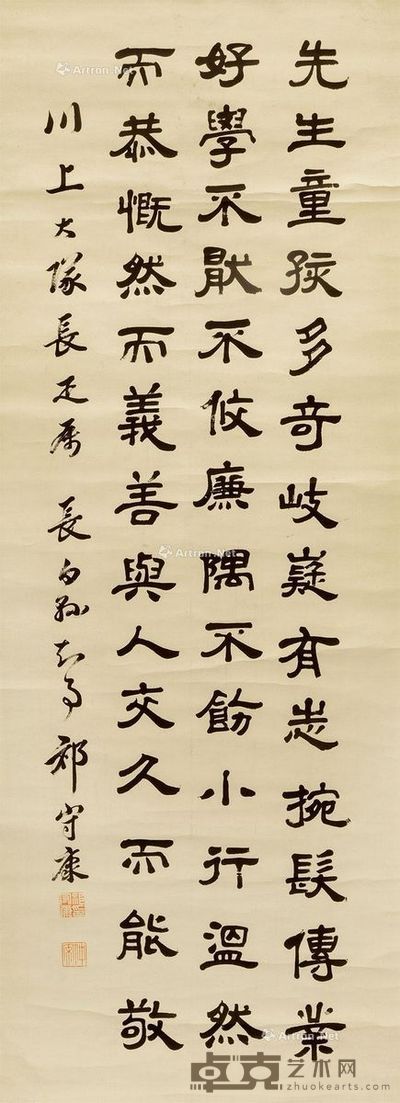 先生童孩多奇岐嶷有志捥髮傳業
好學不猒不攸廉隅不飭小行溫然
而恭慨然而義善與人交久而能敬
川上大隊長疋屬 長白縣知事 守康
Artron.Net
Artron.Net
Artron.Net
卓克艺术网
zhuokearts.com